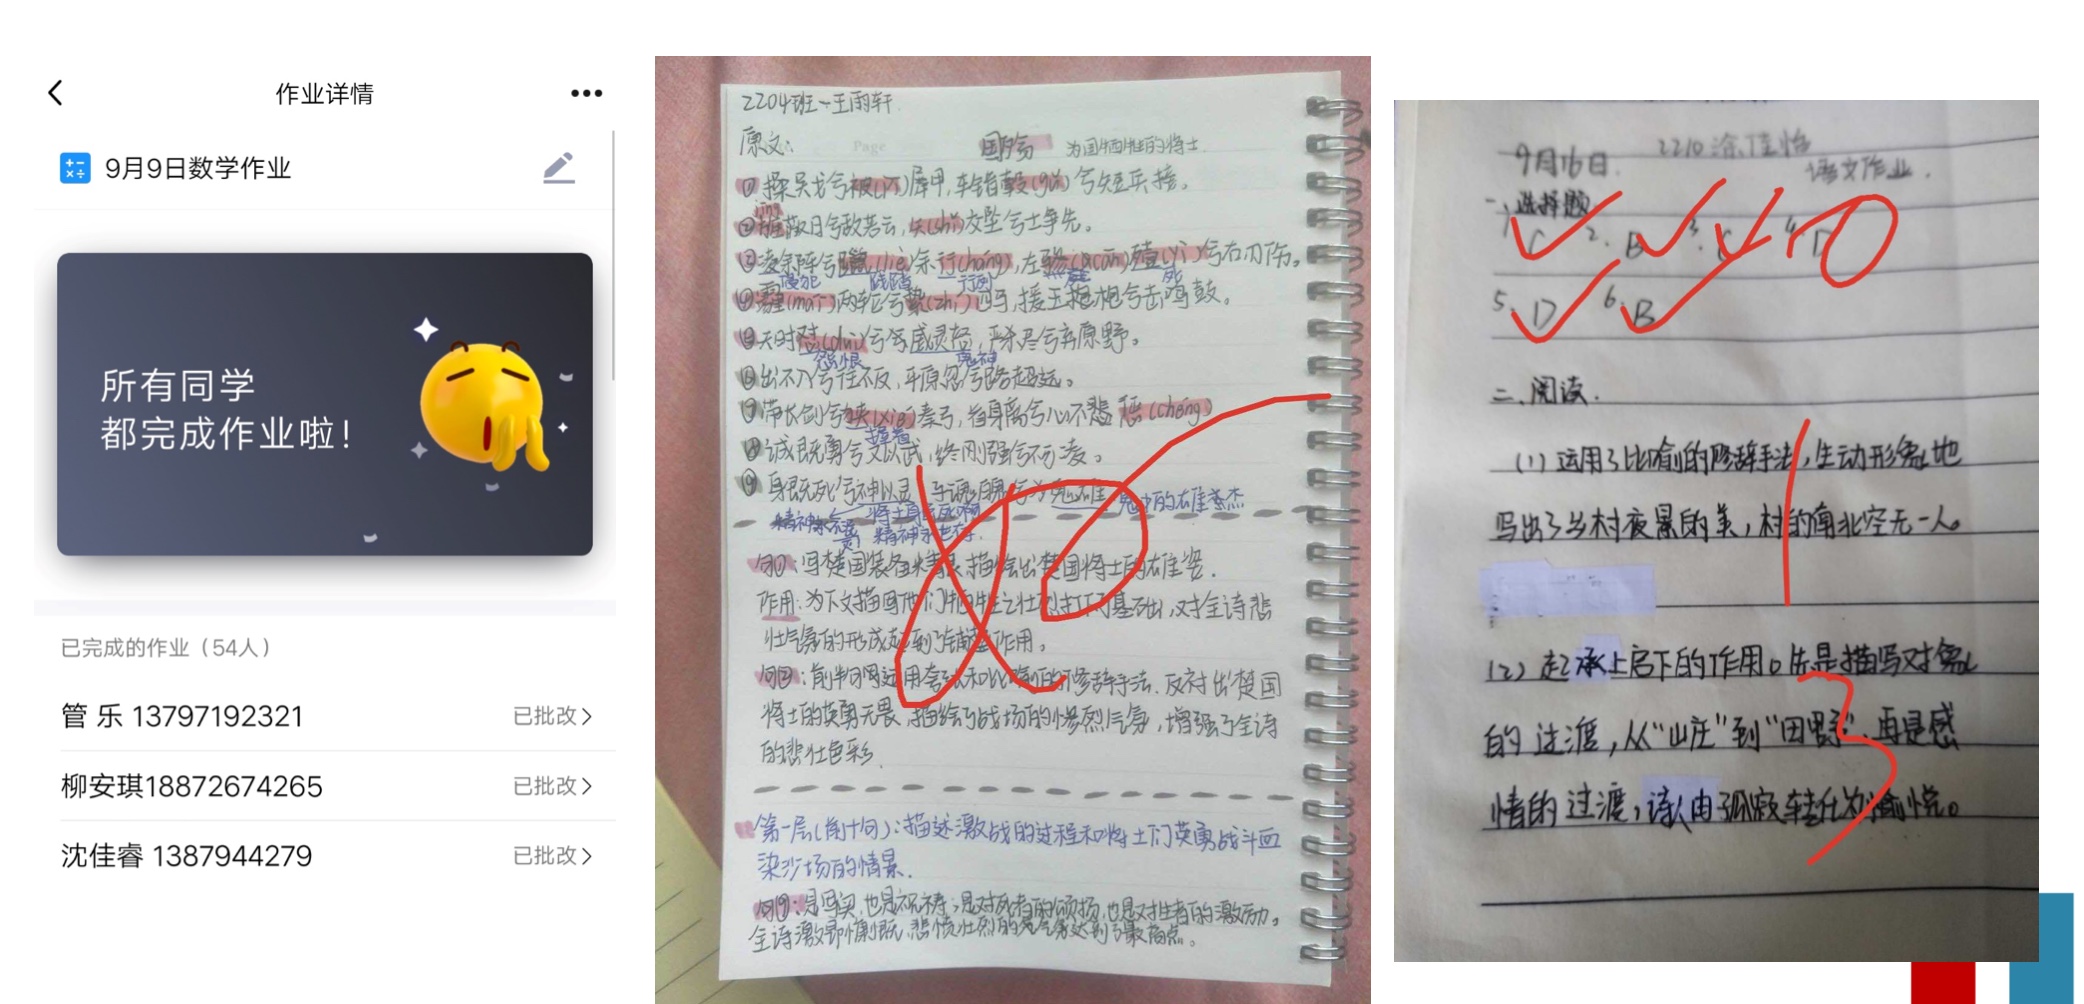 作业详情
9月9日数学作业
所有同学
都完成作业啦！
已完成的作业（54人）
管 乐 13797192321
已批改
柳安琪18872674265
已批改
沈佳睿 1387944279
已批改
2204班—王雨轩
原文：
Page
国殇
为国牺牲的将士
①操吴戈兮被(pī)犀甲，车错毂(gǔ)兮短兵接。
蔽日兮敌若云，矢(shǐ)交坠兮士争先。
③凌余阵兮躐(liè)余行(háng)，左骖(cān)殪(yì)兮右刃伤。
侵犯
践踏
行列
死
④霾(mái)两轮兮絷(zhí)四马，援玉枹兮击鸣鼓。
天时怼(duì)兮威灵怒，严杀尽兮弃原野。
怨恨
鬼神
⑥出不入兮往不反，平原忽兮路超远。
⑦带长剑兮挟(xié)秦弓，首身离兮心不惩(chéng)
⑧诚既勇兮又以武，终刚强兮不可凌。
⑨身既死兮神以灵，子魂魄兮为鬼雄
鬼中的雄豪杰
句①：写楚国装备精良，描绘出楚国将士的雄姿．
作用：为下文描写他们牺牲之壮烈打下了基础，对全诗悲
壮气氛的形成起到了铺垫作用。
前半句运用夸张和比喻的修辞手法，反衬出楚国
将士的英勇无畏，描绘了战场的惨烈气氛，增强了全诗
的悲壮色彩．
第一层(前十句)：描述激战的过程和将士们英勇战斗血
染沙场的情景．
句⑨：是写实，也是祝祷；是对死者的颂扬，也是对生者的激励。
全诗激昂慷慨，悲愤壮烈的气氛达到了最高点。
9月16日
2210 涂佳怡
语文作业．
一、选择题
1. C 2. B 3. C 4. D
5. D 6. B
二、阅读．
(1) 运用了比喻的修辞手法，生动形象地
写出了乡村夜景的美，村的南北空无一人。
1
(2) 起承上启下的作用。先是描写对象
的过渡，从“山庄”到“田野”，再是感
情的过渡，诗人由孤寂转化为愉悦。
3